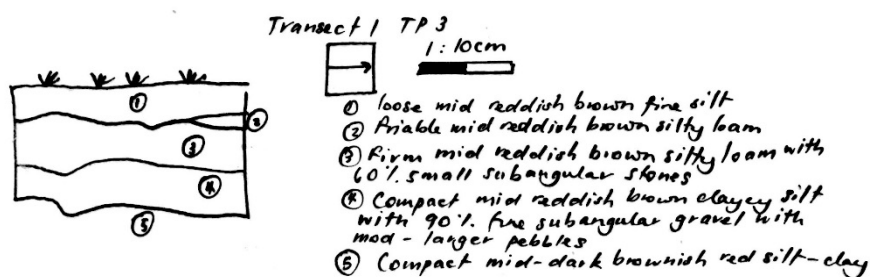 Transect 1 TP 3
1:10cm
①
②
③
④
⑤
① loose mid reddish brown fine silt
② Friable mid reddish brown silty loam
③ Firm mid reddish brown silty loam with
60% small subangular stones
④ Compact mid reddish brown clayey silt
with 90% fine subangular gravel with
mod - larger pebbles
⑤ Compact mid-dark brownish red silt-clay